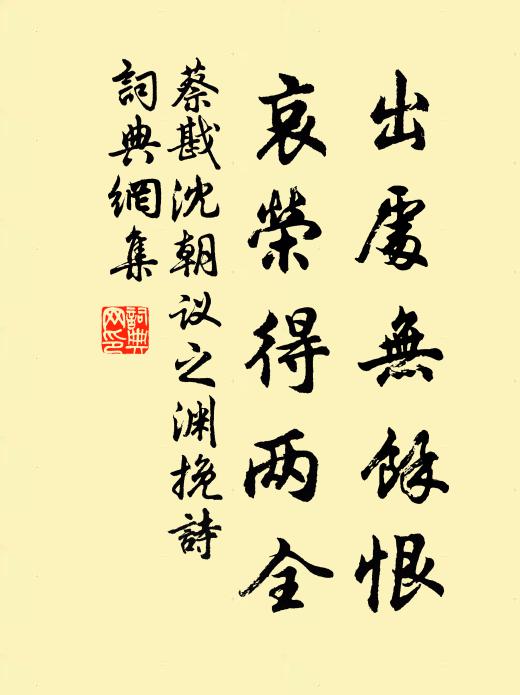 出處無餘恨
哀榮得两全
蔡戡沈朝议之渊挽詩
詞典網集
詞典网印